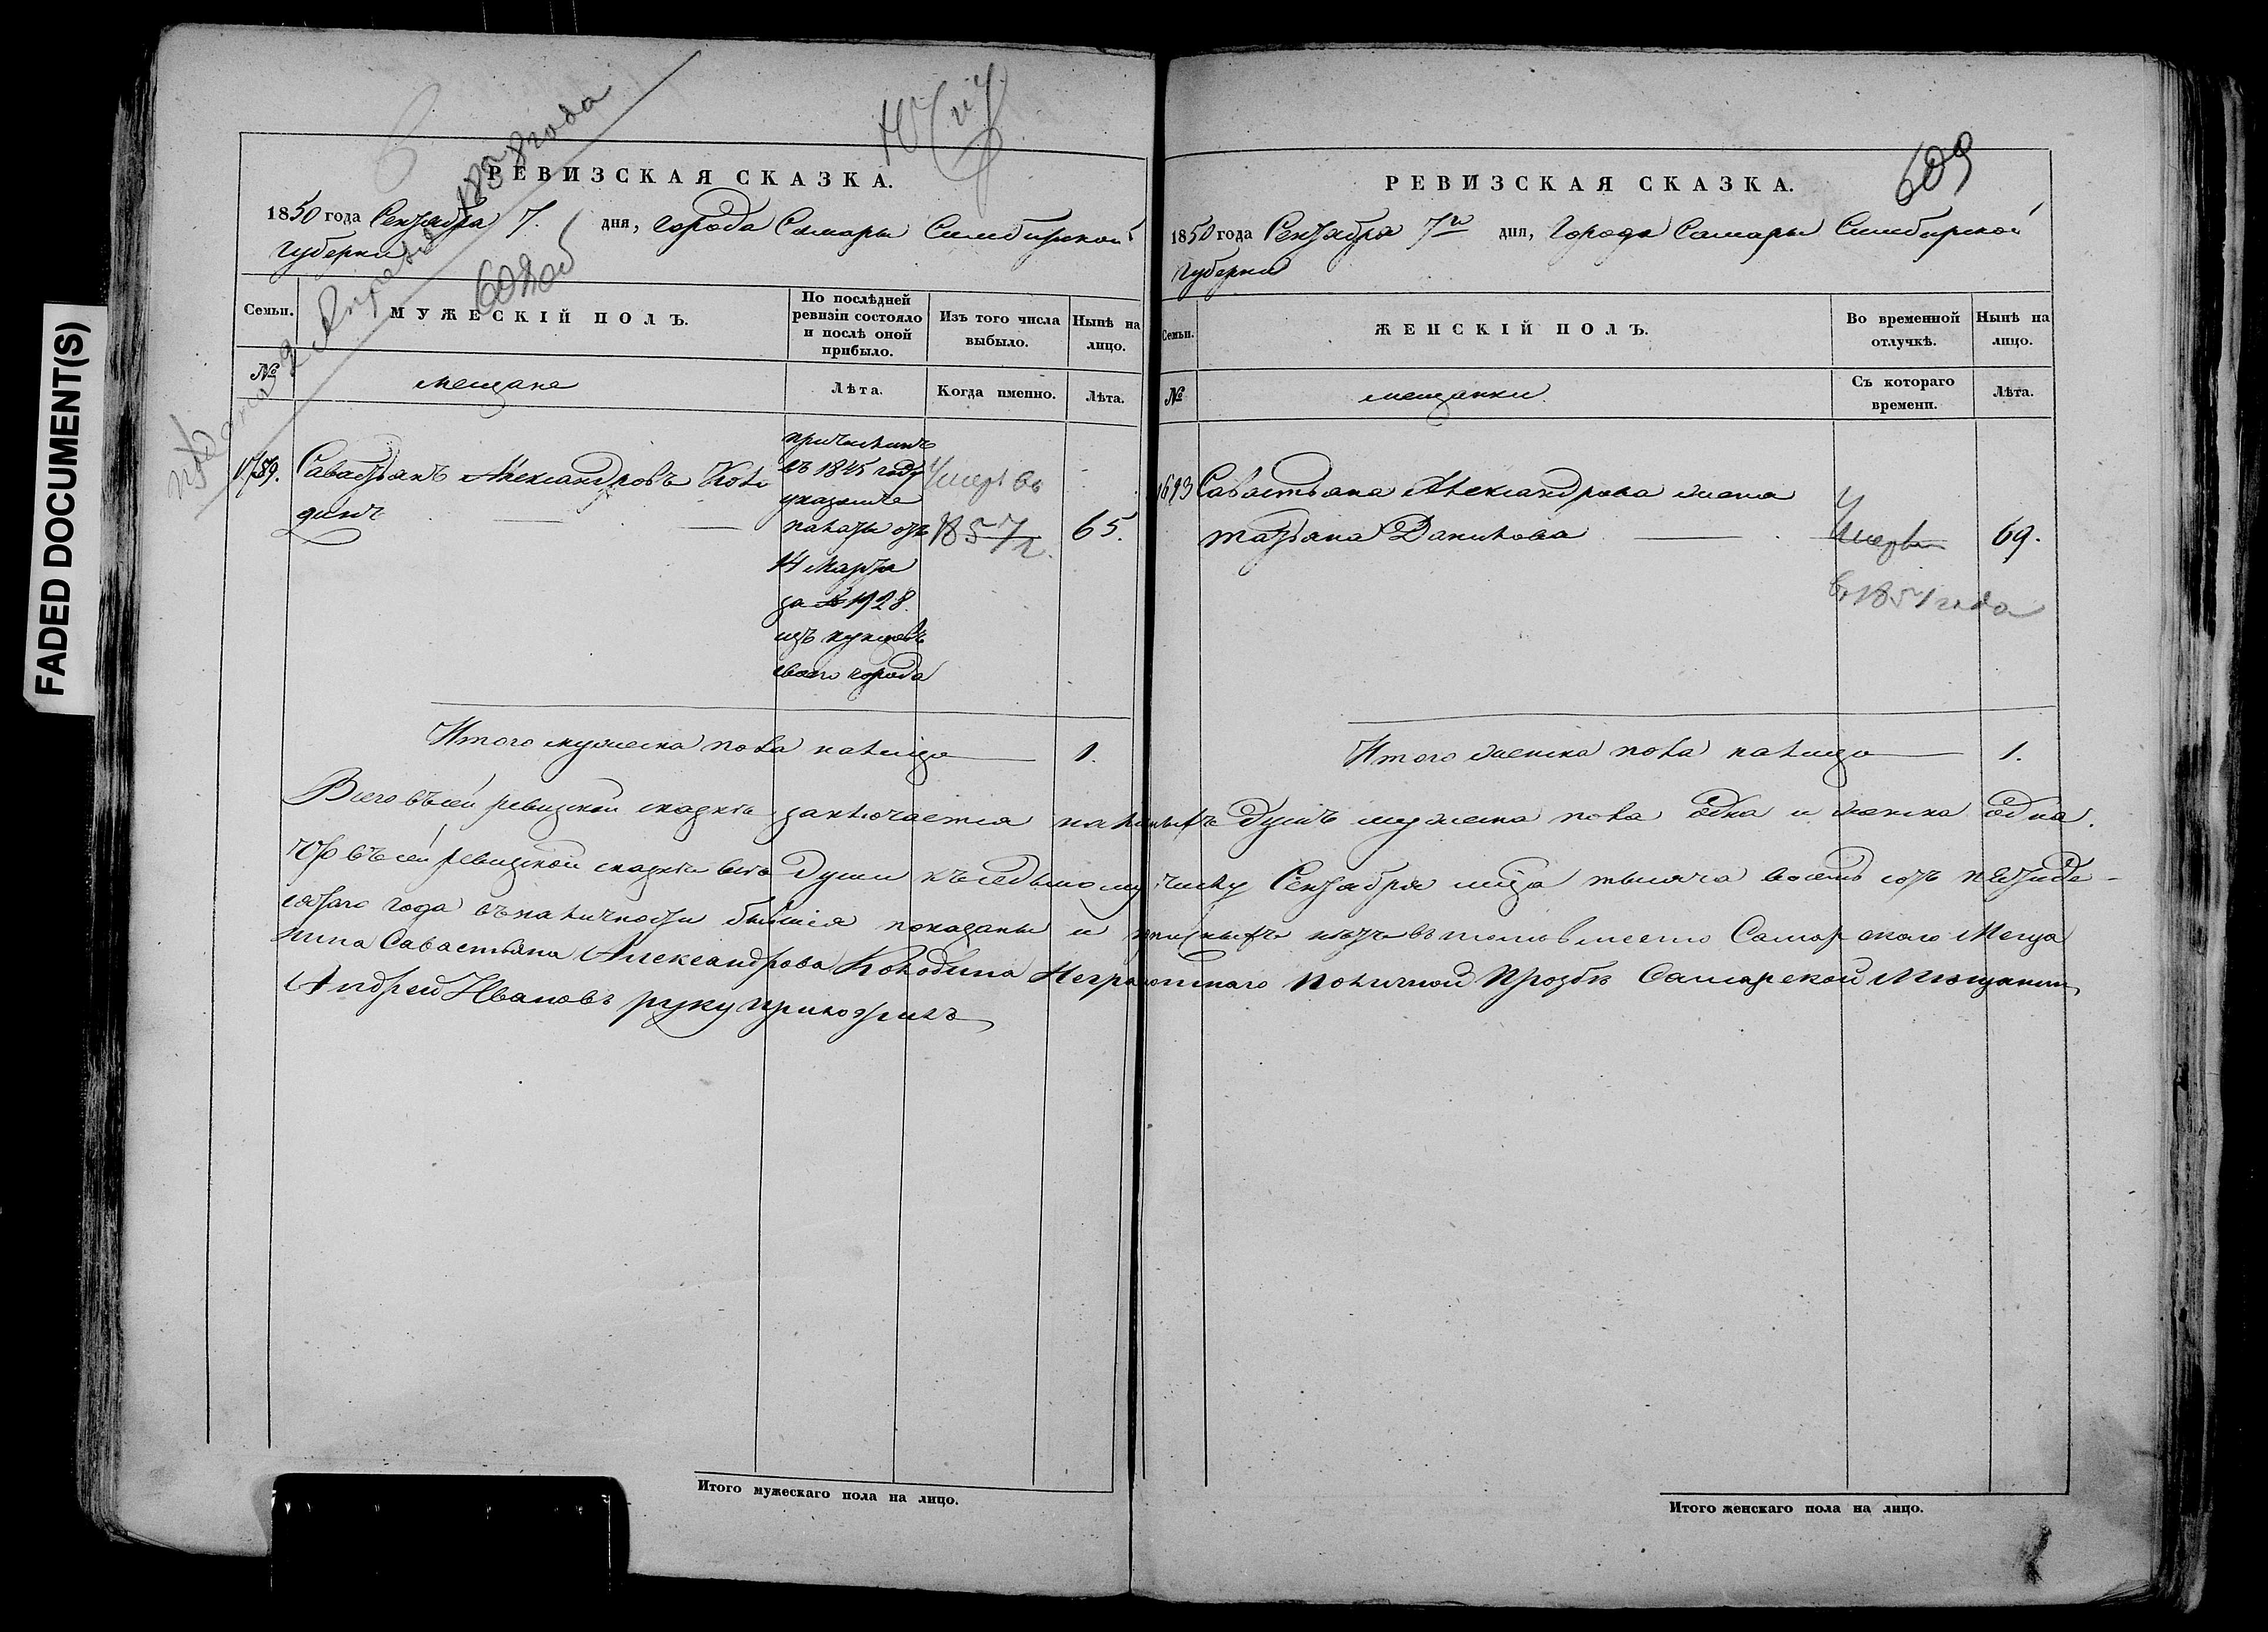 FADED DOCUMENT(S)
подана 9 Апреля 1858 года
608 об
РЕВИЗСКАЯ СКАЗКА.
1850 года Сентября 7. дня, города Самары Симбирской
губернии
Семьи.
МУЖЕСКІЙ ПОЛЪ.
По послѣдней
ревизіи состояло
и послѣ оной
прибыло.
Изъ того числа
выбыло.
Нынѣ на
лицо.
№
мещане
Лѣта.
Когда именно.
Лѣта.
1589.
Савастьянъ Александровъ Коло
динъ
причисленъ
въ 1845 году
указомъ
палаты отъ
14 Марта
за № 1928.
изъ купцовъ
своего города
Умер во
1857 г.
65.
Итого мужеска пола налицо 1.
609
РЕВИЗСКАЯ СКАЗКА.
1850 года Сентября 7го дня, Города Самары Симбирской
губернии
Семьи.
ЖЕНСКІЙ ПОЛЪ.
Во временной
отлучкѣ.
Нынѣ на
лицо.
№
мещанки
Съ котораго
времени.
Лѣта.
1693
Савастьяна Александрова жена
татьяна Данилова
Умерла
в 1851 года
69.
Итого женска пола налицо 1.
Всего въ сей ревизской сказкѣ заключается наличныхъ душъ мужеска пола одна и женска одна.
что въ сей ревизской сказки всѣ души къ седьмому числу Сентября мца тысяча восемь сотъ пятиде-
сятаго года въ наличности бывшія показаны и прописныхъ нѣтъ въ томъ вместо Самарскаго Меща
нина Савастьяна Александрова Колодина Неграмотнаго поличной прозбѣ Самарской Мещанин
Андрей Ивановъ руку приложилъ
Итого мужескаго пола на лицо.
Итого женскаго пола на лицо.